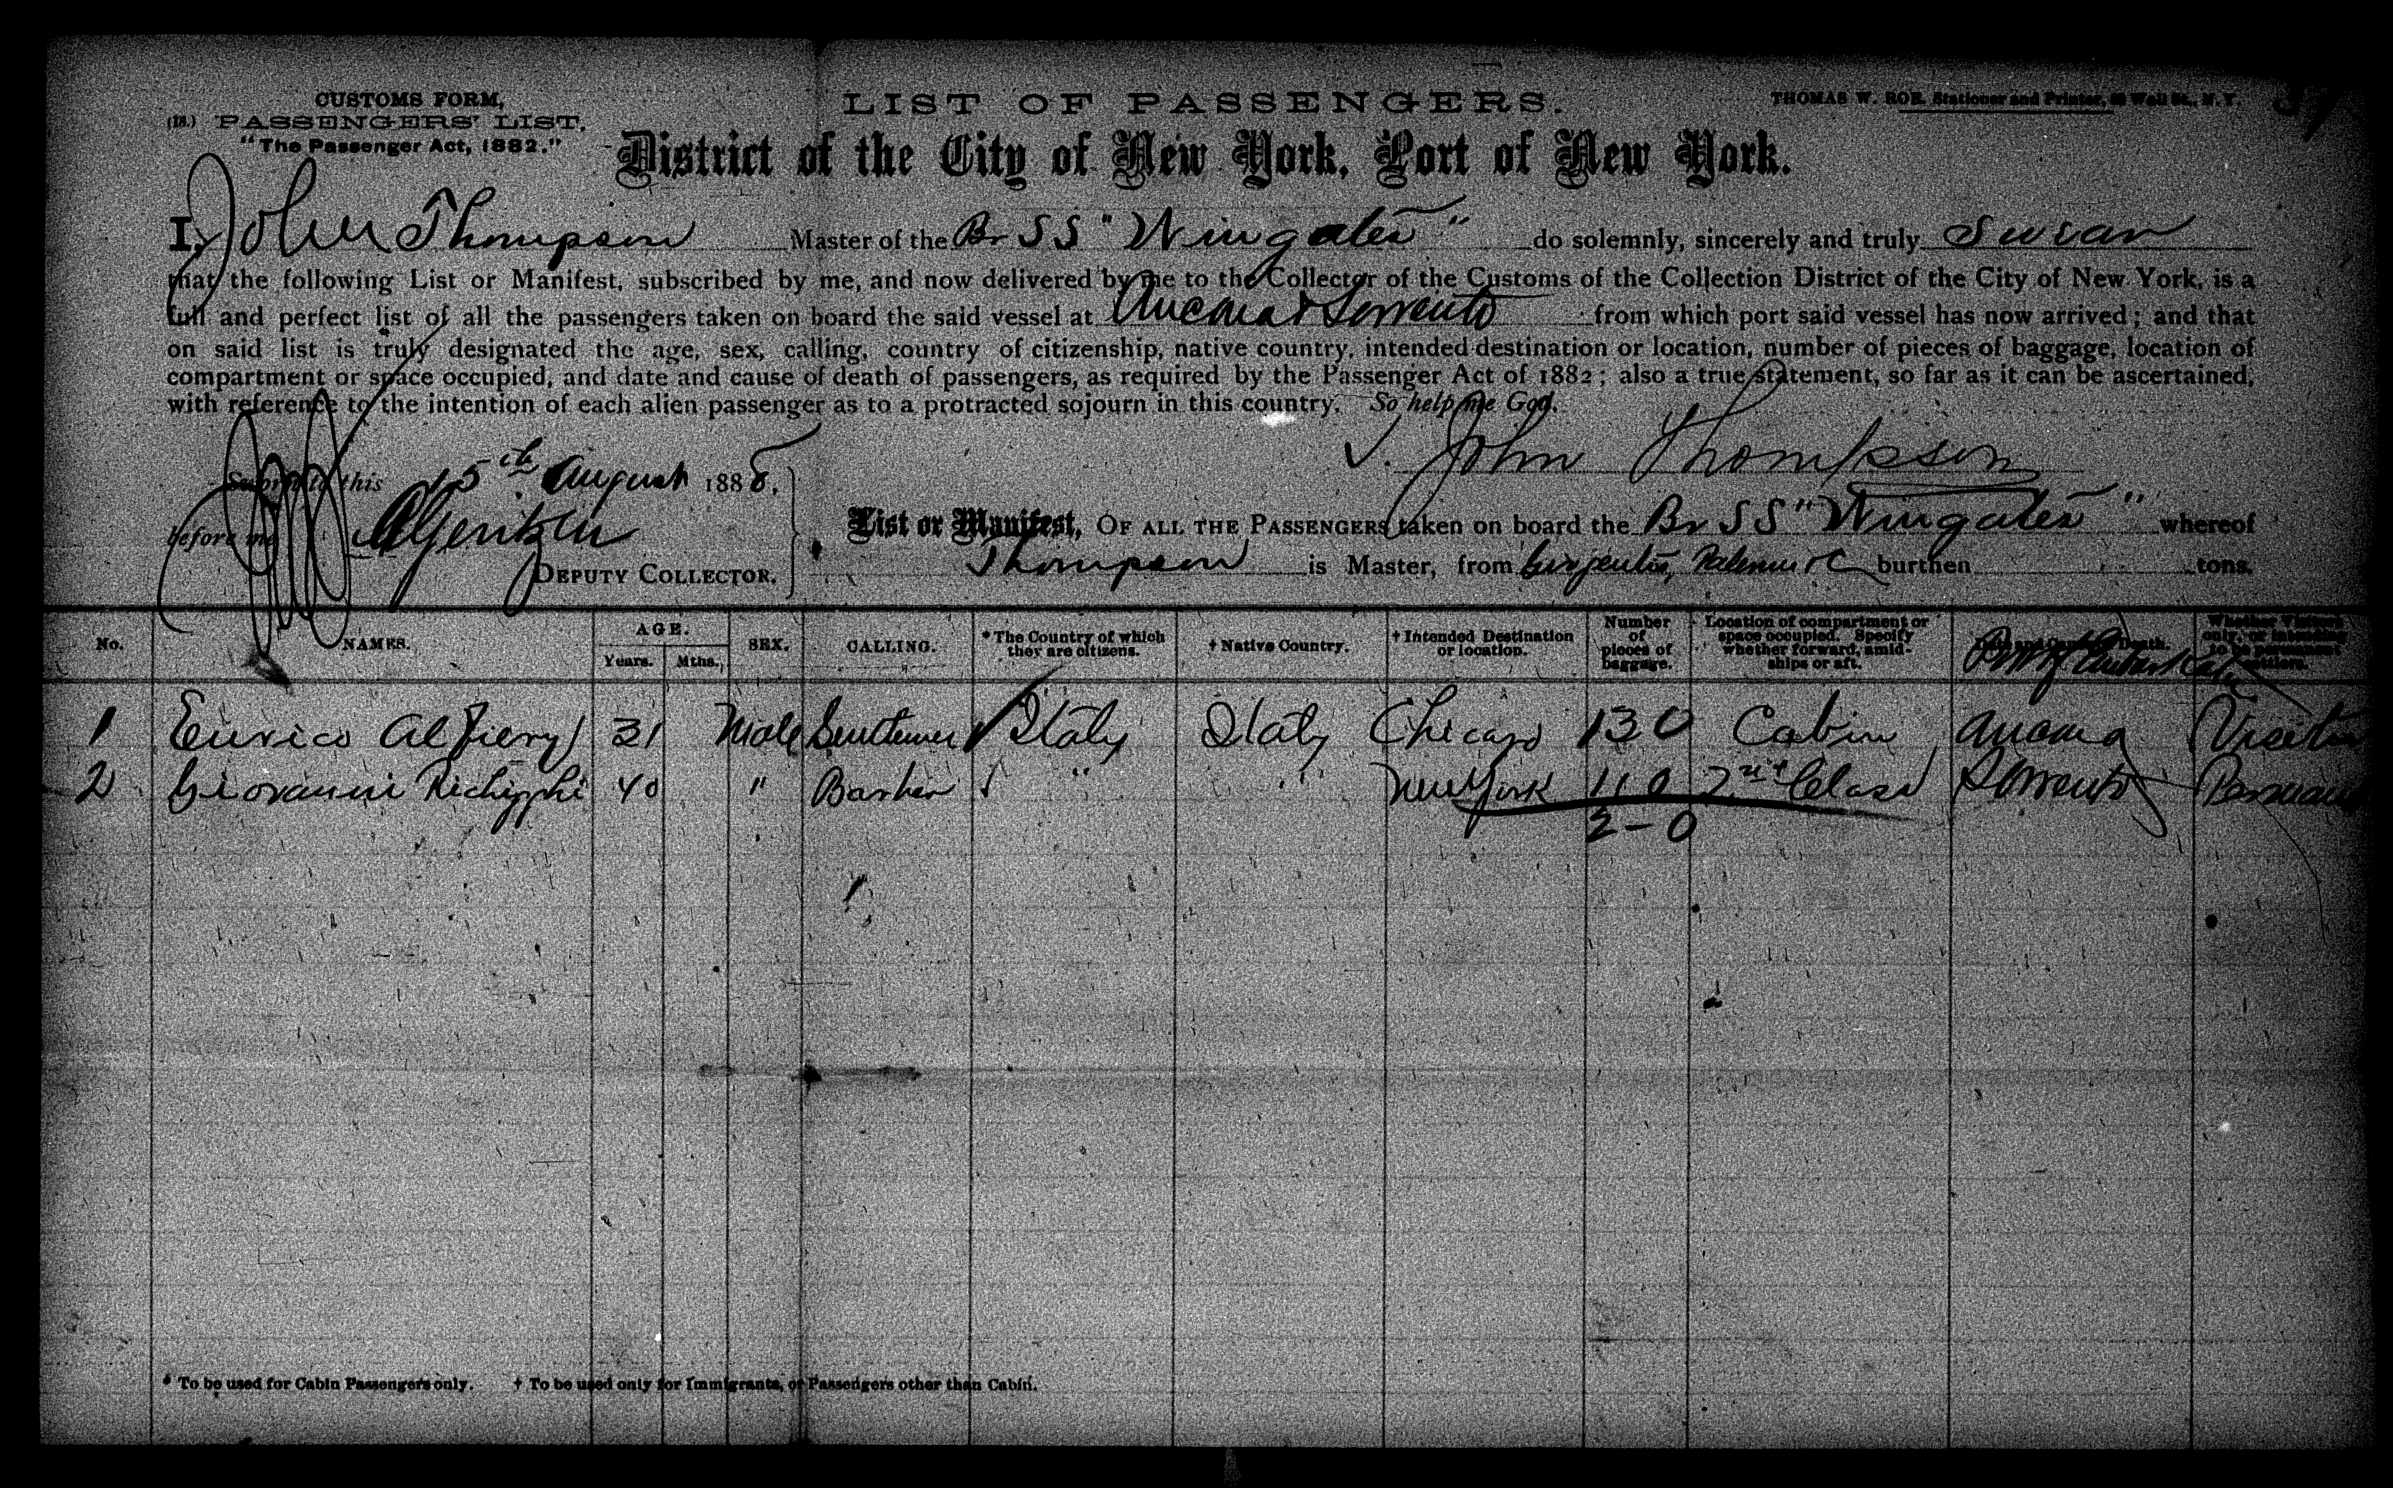 CUSTOMS FORM,
(18.) PASSENGERS' LIST.
"The Passenger Act, 1882."
LIST OF PASSENGERS.
THOMAS W. ROE, Stationer and Printer, Wall St., N. Y.
District of the City of New York, Port of New York.
I, John Thompson Master of the Br SS "Wingates" do solemnly, sincerely and truly swear
that the following List or Manifest, subscribed by me, and now delivered by me to the Collector of the Customs of the Collection District of the City of New York, is a
full and perfect list of all the passengers taken on board the said vessel at Ancona & Sorrento from which port said vessel has now arrived; and that
on said list is truly designated the age, sex, calling, country of citizenship, native country, intended destination or location, number of pieces of baggage, location of
compartment or space occupied, and date and cause of death of passengers, as required by the Passenger Act of 1882; also a true statement, so far as it can be ascertained,
with reference to the intention of each alien passenger as to a protracted sojourn in this country. So help me God.
John Thompson
Sworn to this 15th August 1888,
before me
DEPUTY COLLECTOR.
List or Manifest, OF ALL THE PASSENGERS taken on board the Br SS "Wingates" whereof
Thompson is Master, from Girgenti, Palermo &c burthen tons.
No. NAMES. AGE. Years. Mths. SEX. CALLING. * The Country of which they are citizens. † Native Country. † Intended Destination or location. Number of pieces of baggage. Location of compartment or space occupied. Specify whether forward, amidships or aft. Death. Port of Embarkation Whether Visitors only, or intending to be permanent settlers.
1 Enrico Alfiery 31 Male Gentleman Italy Italy Chicago 1 30 Cabin Ancona Visitor
2 Giovanni 40 " " " New York 1 10 2nd Class Sorrento
2-0
* To be used for Cabin Passengers only. † To be used only for Immigrants, or Passengers other than Cabin.